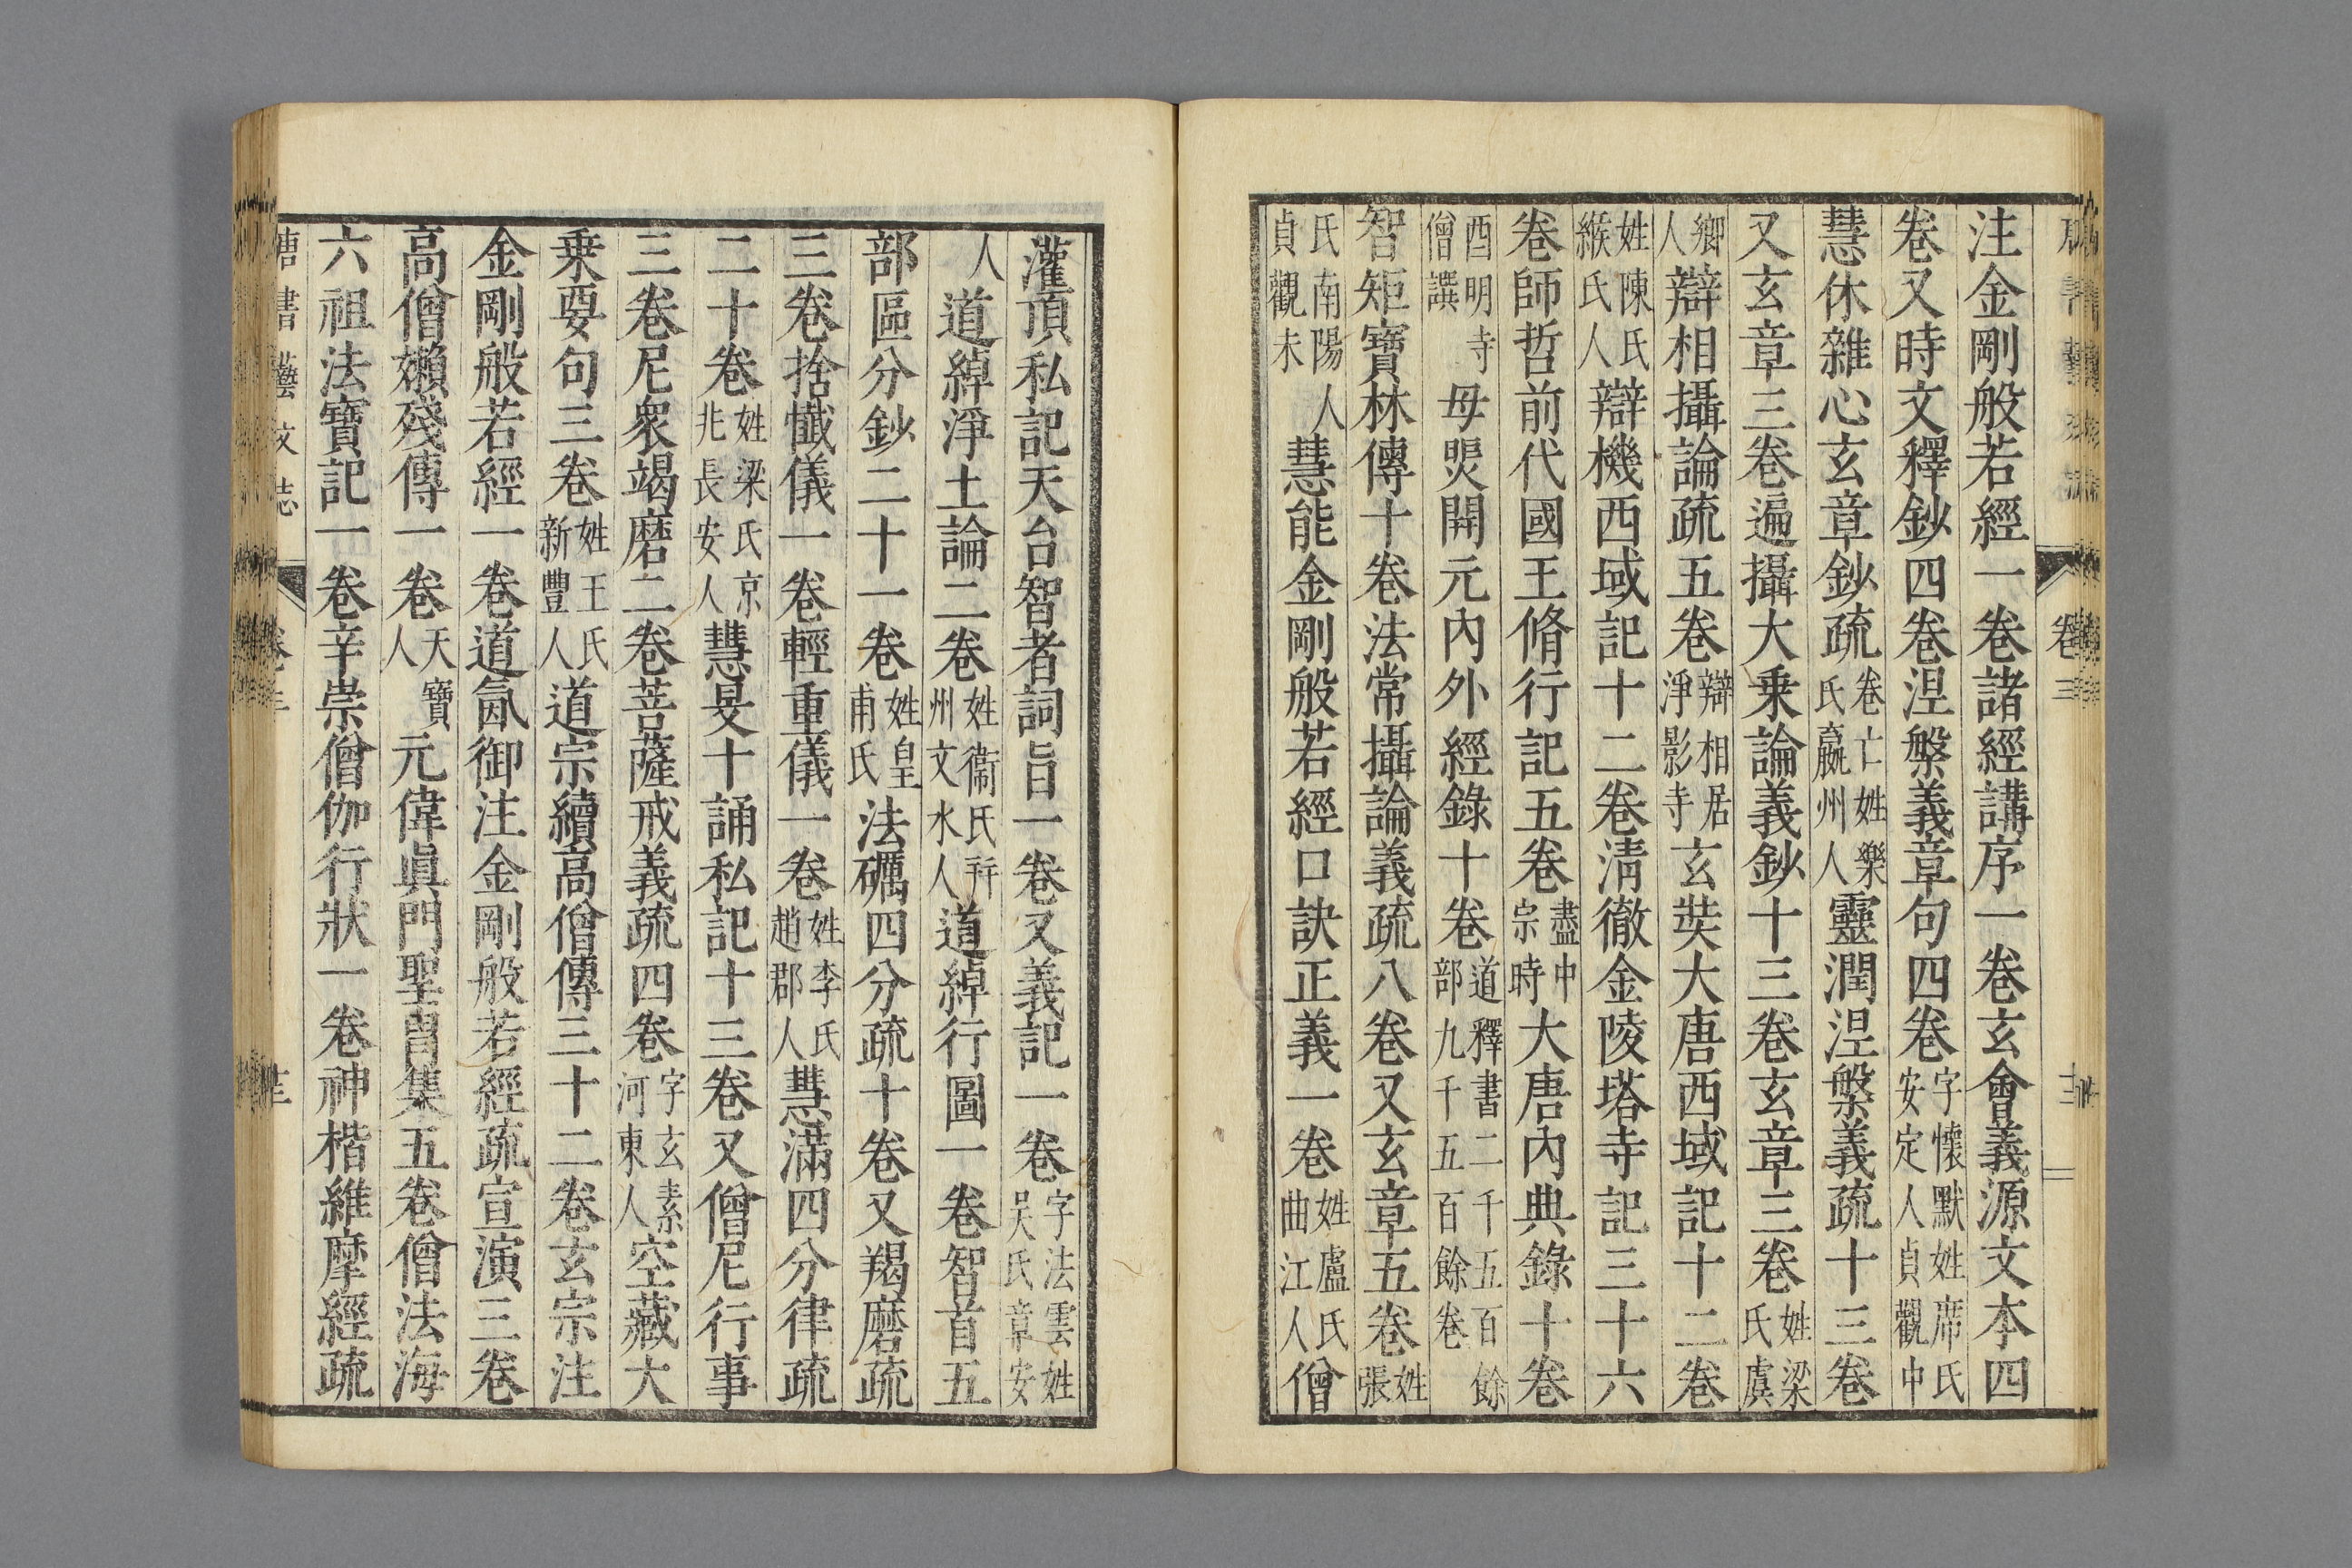 注金剛般若經一卷諸經講序一卷玄會義源文本四
卷又時文釋鈔四卷涅槃義章句四卷字懷默姓席氏安定人貞觀中
慧休雜心玄章鈔疏卷亡姓樂氏瀛州人靈潤涅槃義疏十三卷
又玄章三卷遍攝大乗論義鈔十三卷玄章三卷姓梁氏虞
鄉人辯相攝論疏五卷辯相居淨影寺玄奘大唐西域記十二卷
姓陳氏緱氏人辯機西域記十二卷清徹金陵塔寺記三十六
卷師哲前代國王脩行記五卷盡中宗時大唐內典錄十卷
西明寺僧譔毋煚開元內外經錄十卷道釋書二千五百餘部九千五百餘卷
智矩寶林傳十卷法常攝論義疏八卷又玄章五卷姓張
氏南陽人貞觀末慧能金剛般若經口訣正義一卷姓盧氏曲江人僧
灌頂私記天台智者詞旨一卷又義記一卷字法雲姓吳氏章安
人道綽淨土論二卷姓衞氏幷州文水人道綽行圖一卷智首五
部區分鈔二十一卷姓皇甫氏法礪四分疏十卷又羯磨疏
三卷捨懺儀一卷輕重儀一卷姓李氏趙郡人慧滿四分律疏
二十卷姓梁氏京兆長安人慧旻十誦私記十三卷又僧尼行事
三卷尼衆羯磨二卷菩薩戒義疏四卷字玄素河東人空藏大
乗要句三卷姓王氏新豐人道宗續高僧傳三十二卷玄宗注
金剛般若經一卷道氤御注金剛般若經疏宣演三卷
高僧嬾殘傳一卷天寶人元偉眞門聖胄集五卷僧法海
六祖法寶記一卷辛崇僧伽行狀一卷神楷維摩經疏
唐書藝文志 卷三